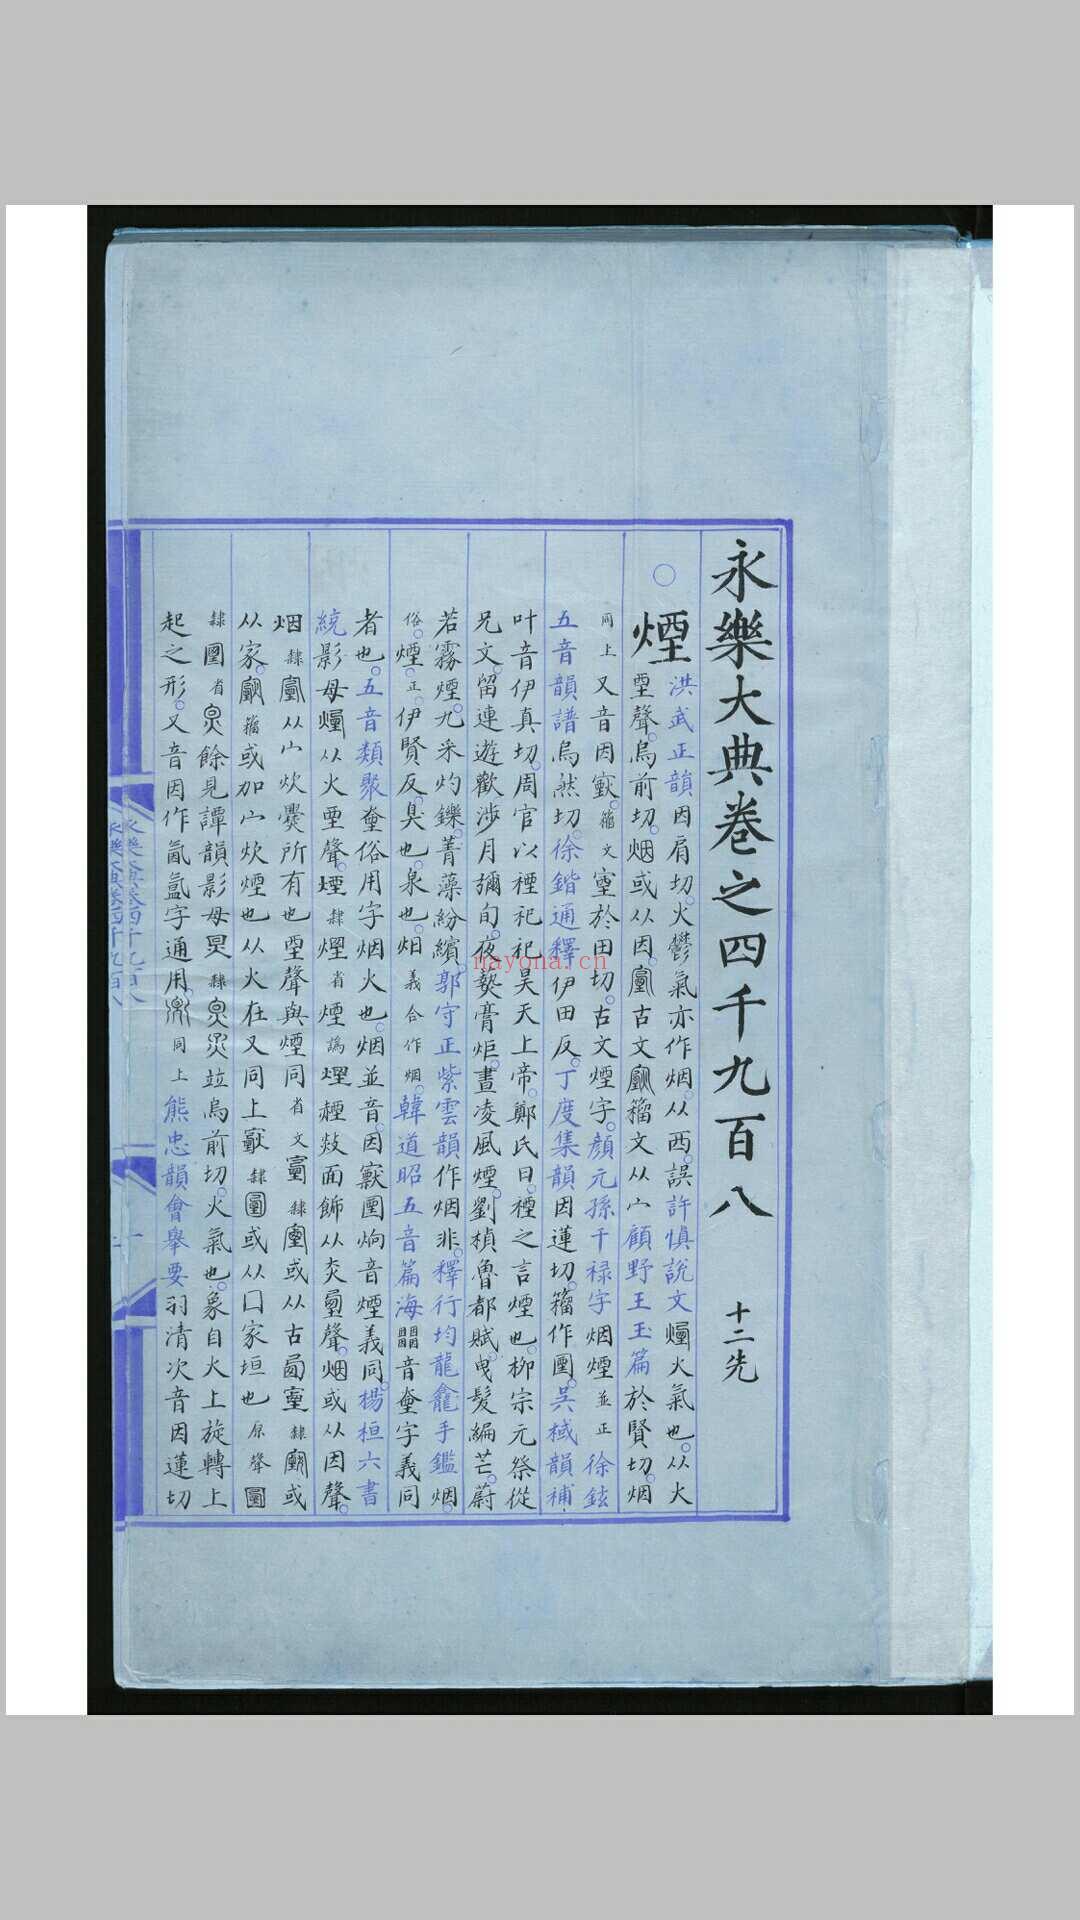 永樂大典卷之四千九百八 十二先
煙
洪武正韻因肩切火鬱氣亦作烟从西誤許慎說文煙火氣也从火
垔聲烏前切烟或从因𡨾古文𡪞籀文从宀顧野王玉篇於賢切烟
同上又音因籀文窒於田切古文煙字顏元孫干祿字烟煙並正徐鉉
五音韻譜烏然切徐鍇通釋伊田反丁度集韻因蓮切籀作吳棫韻補
叶音伊真切周官以禋祀祀昊天上帝鄭氏曰禋之言煙也柳宗元祭從
兄文留連遊歡涉月彌旬夜爇膏炬晝凌風煙劉楨魯都賦曳髮編芒蔚
若霧煙九采灼鑠菁藻紛繽郭守正紫雲韻作烟非釋行均龍龕手鑑烟
俗煙正伊賢反臭也泉也烟義合作烟韓道昭五音篇海音字義同
者也五音類聚俗用字烟火也烟並音因音煙義同楊桓六書
統影母煙从火垔聲煙隸煙省煙譌面飾从聲烟或从因聲
烟隸从宀炊爨所有也垔聲與煙同省文隸或从古隸或
从家籀或加宀炊煙也从火在又同上隸或从囗家垣也原聲
隸省餘見譚韻影母隸並烏前切火氣也象自火上旋轉上
起之形又音因作氤氳字通用同上熊忠韻會舉要羽清次音因蓮切
永樂大典卷四千九百八
nayona.cn